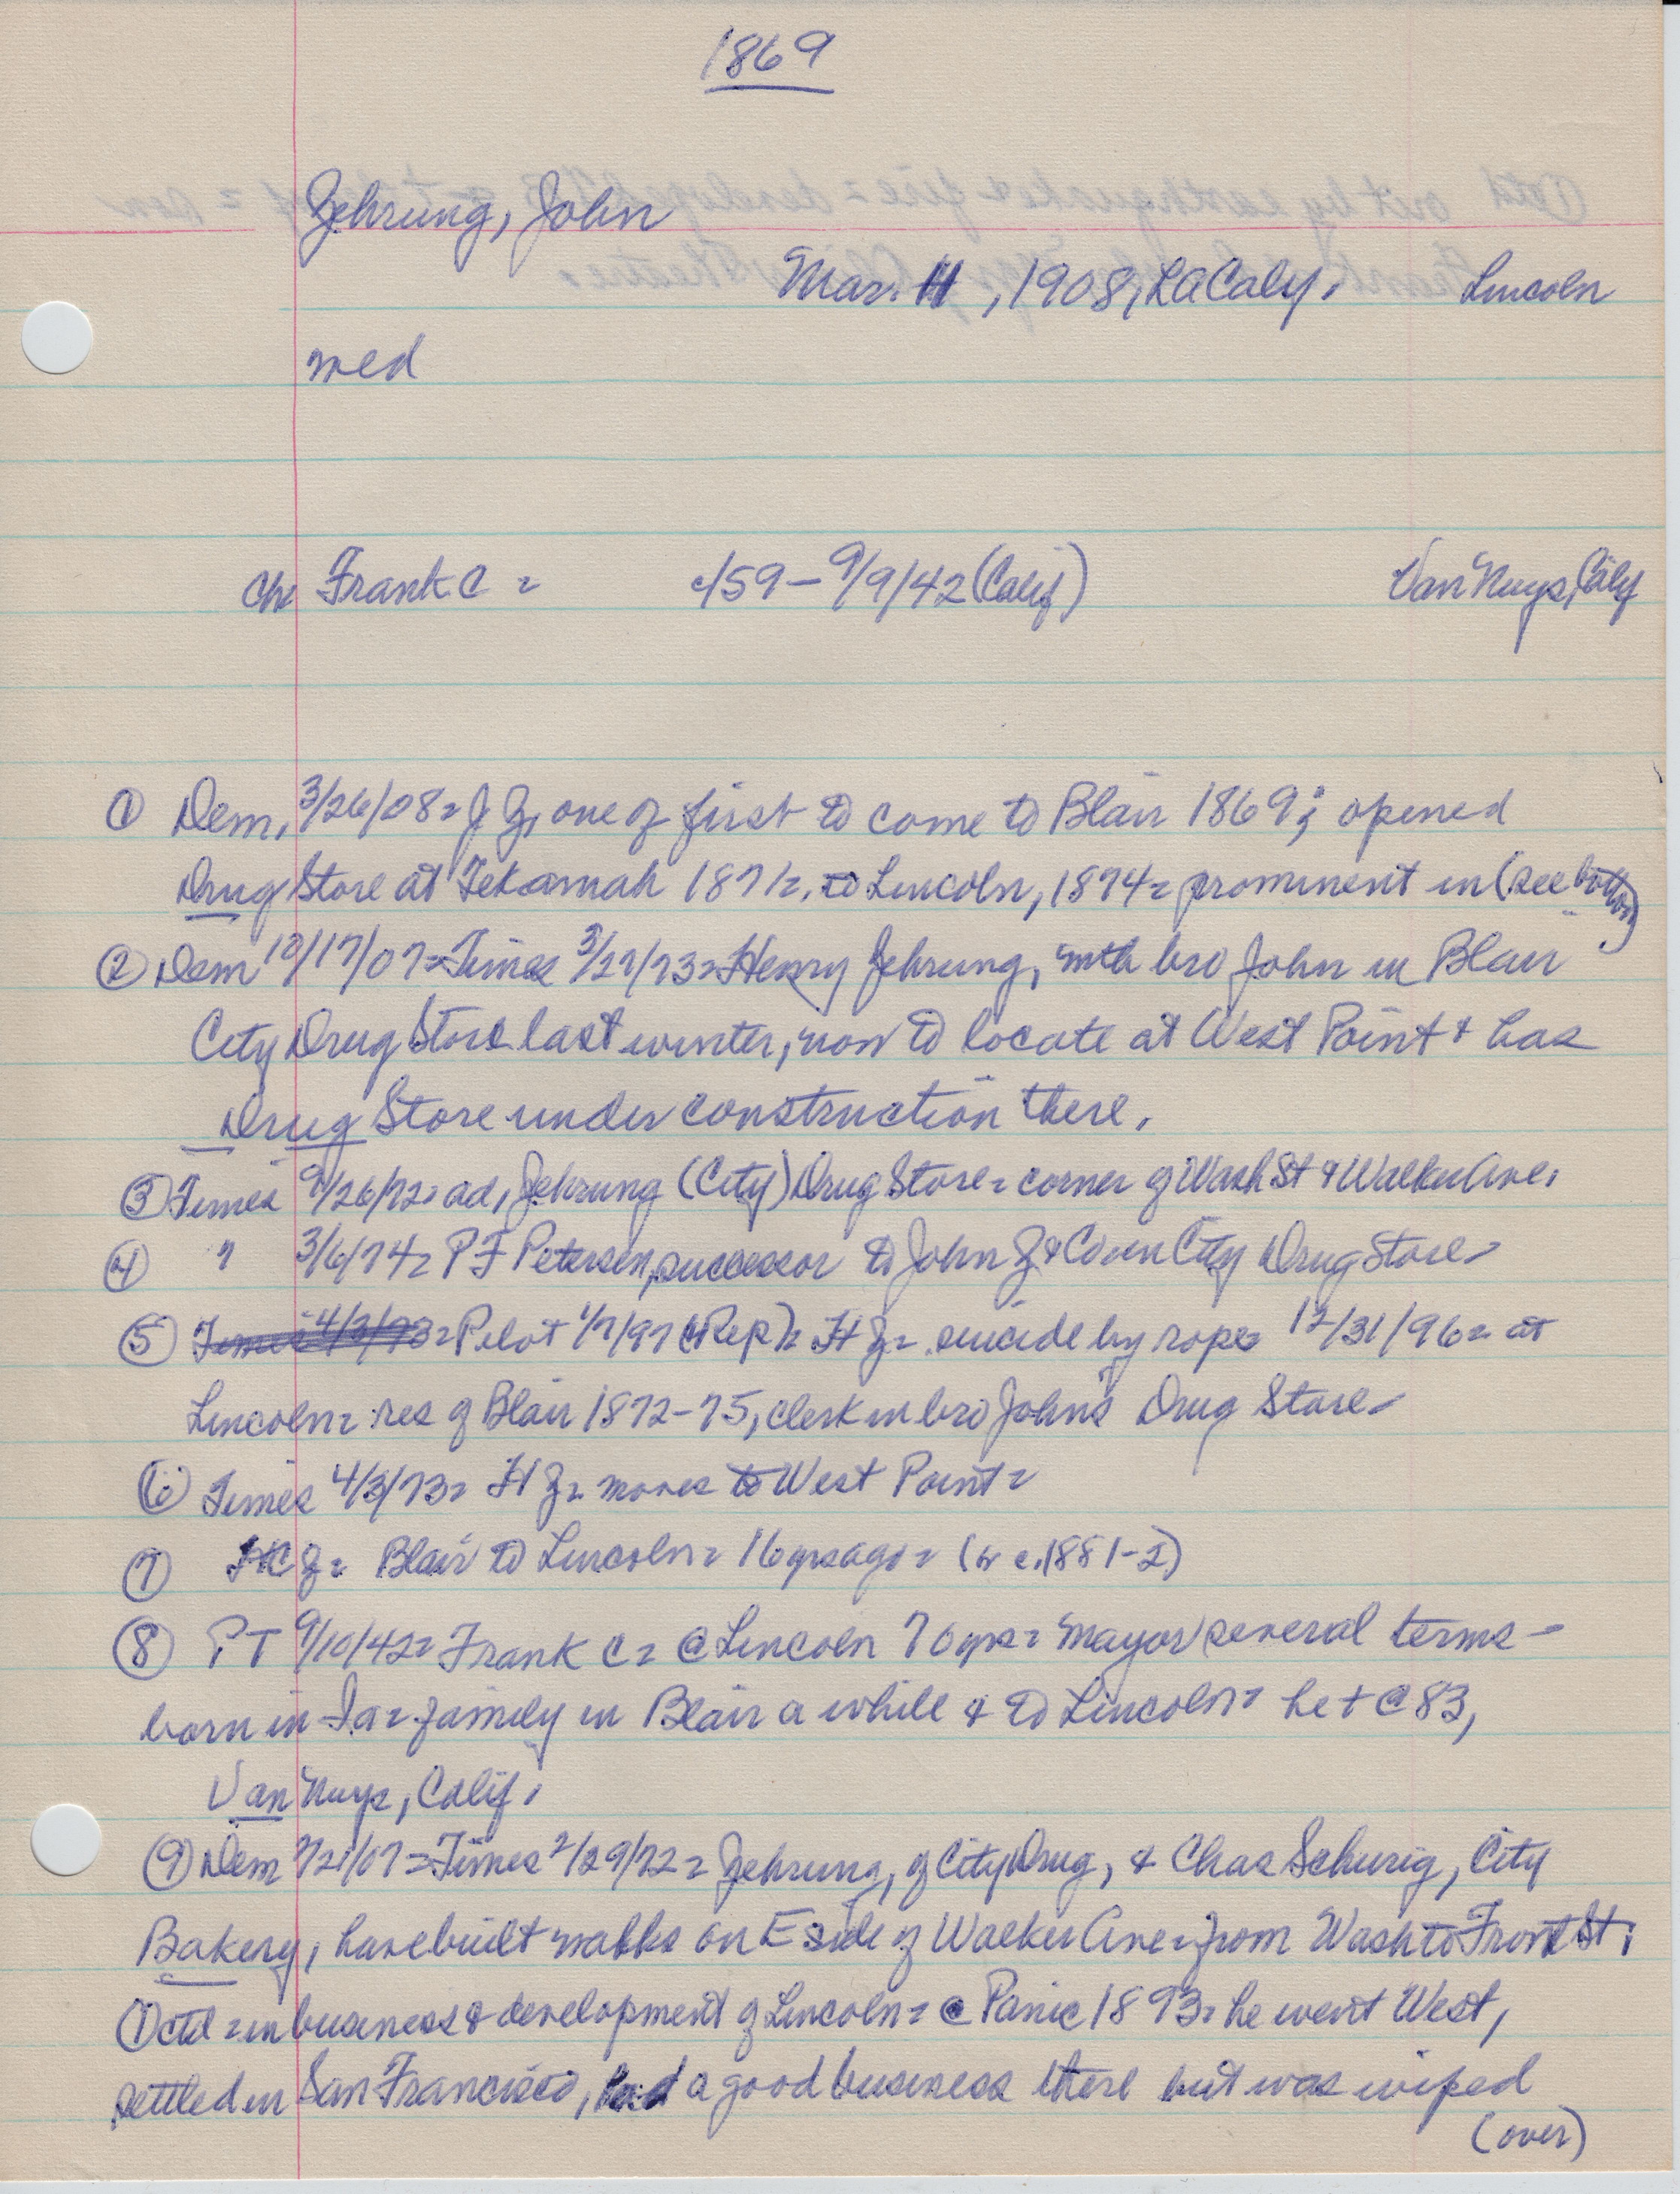 1869
Zehrung, John
Mar. 11, 1908, LA Calif. Lincoln
med
Ch Frank C = c/59 - 9/9/42 (Calif) Van Nuys, Calif
① Dem, 3/26/08 = J Z, one of first to come to Blair 1869; opened
Drug Store at Tekamah 1871 =, to Lincoln, 1874 = prominent in (see bottom)
② Dem 10/17/07 = Times 3/27/73 = Henry Zehrung, with bro John in Blair
City Drug Store last winter, now to locate at West Point & has
Drug Store under construction there.
③ Times 9/26/72 = ad, Zehrung (City) Drug Store = corner of Wash St & Walker Ave.
④ " 3/6/74 = P F Petersen, successor to John Z & Co in City Drug Store -
⑤ Times 4/3/73 = Pilot 1/7/97 (Rep) = H Z = suicide by rope 12/31/96 = at
Lincoln = res of Blair 1872-75, clerk in bro John's Drug Store -
⑥ Times 4/3/73 = H Z = moves to West Point =
⑦ HC Z = Blair to Lincoln = 16 yrs ago = (or c. 1881-2)
⑧ PT 9/10/42 = Frank C = @ Lincoln 70 yrs = mayor several terms -
born in Ia = family in Blair a while & to Lincoln = he + @ 83,
Van Nuys, Calif.
⑨ Dem 7/21/07 = Times 2/29/72 = Zehrung, of City Drug, & Chas Schurig, City
Bakery, have built walks on E side of Walker Ave = from Wash to Front St.
① ctd = in business & development of Lincoln = @ Panic 1893 = he went West,
settled in San Francisco, had a good business there but was wiped
(over)